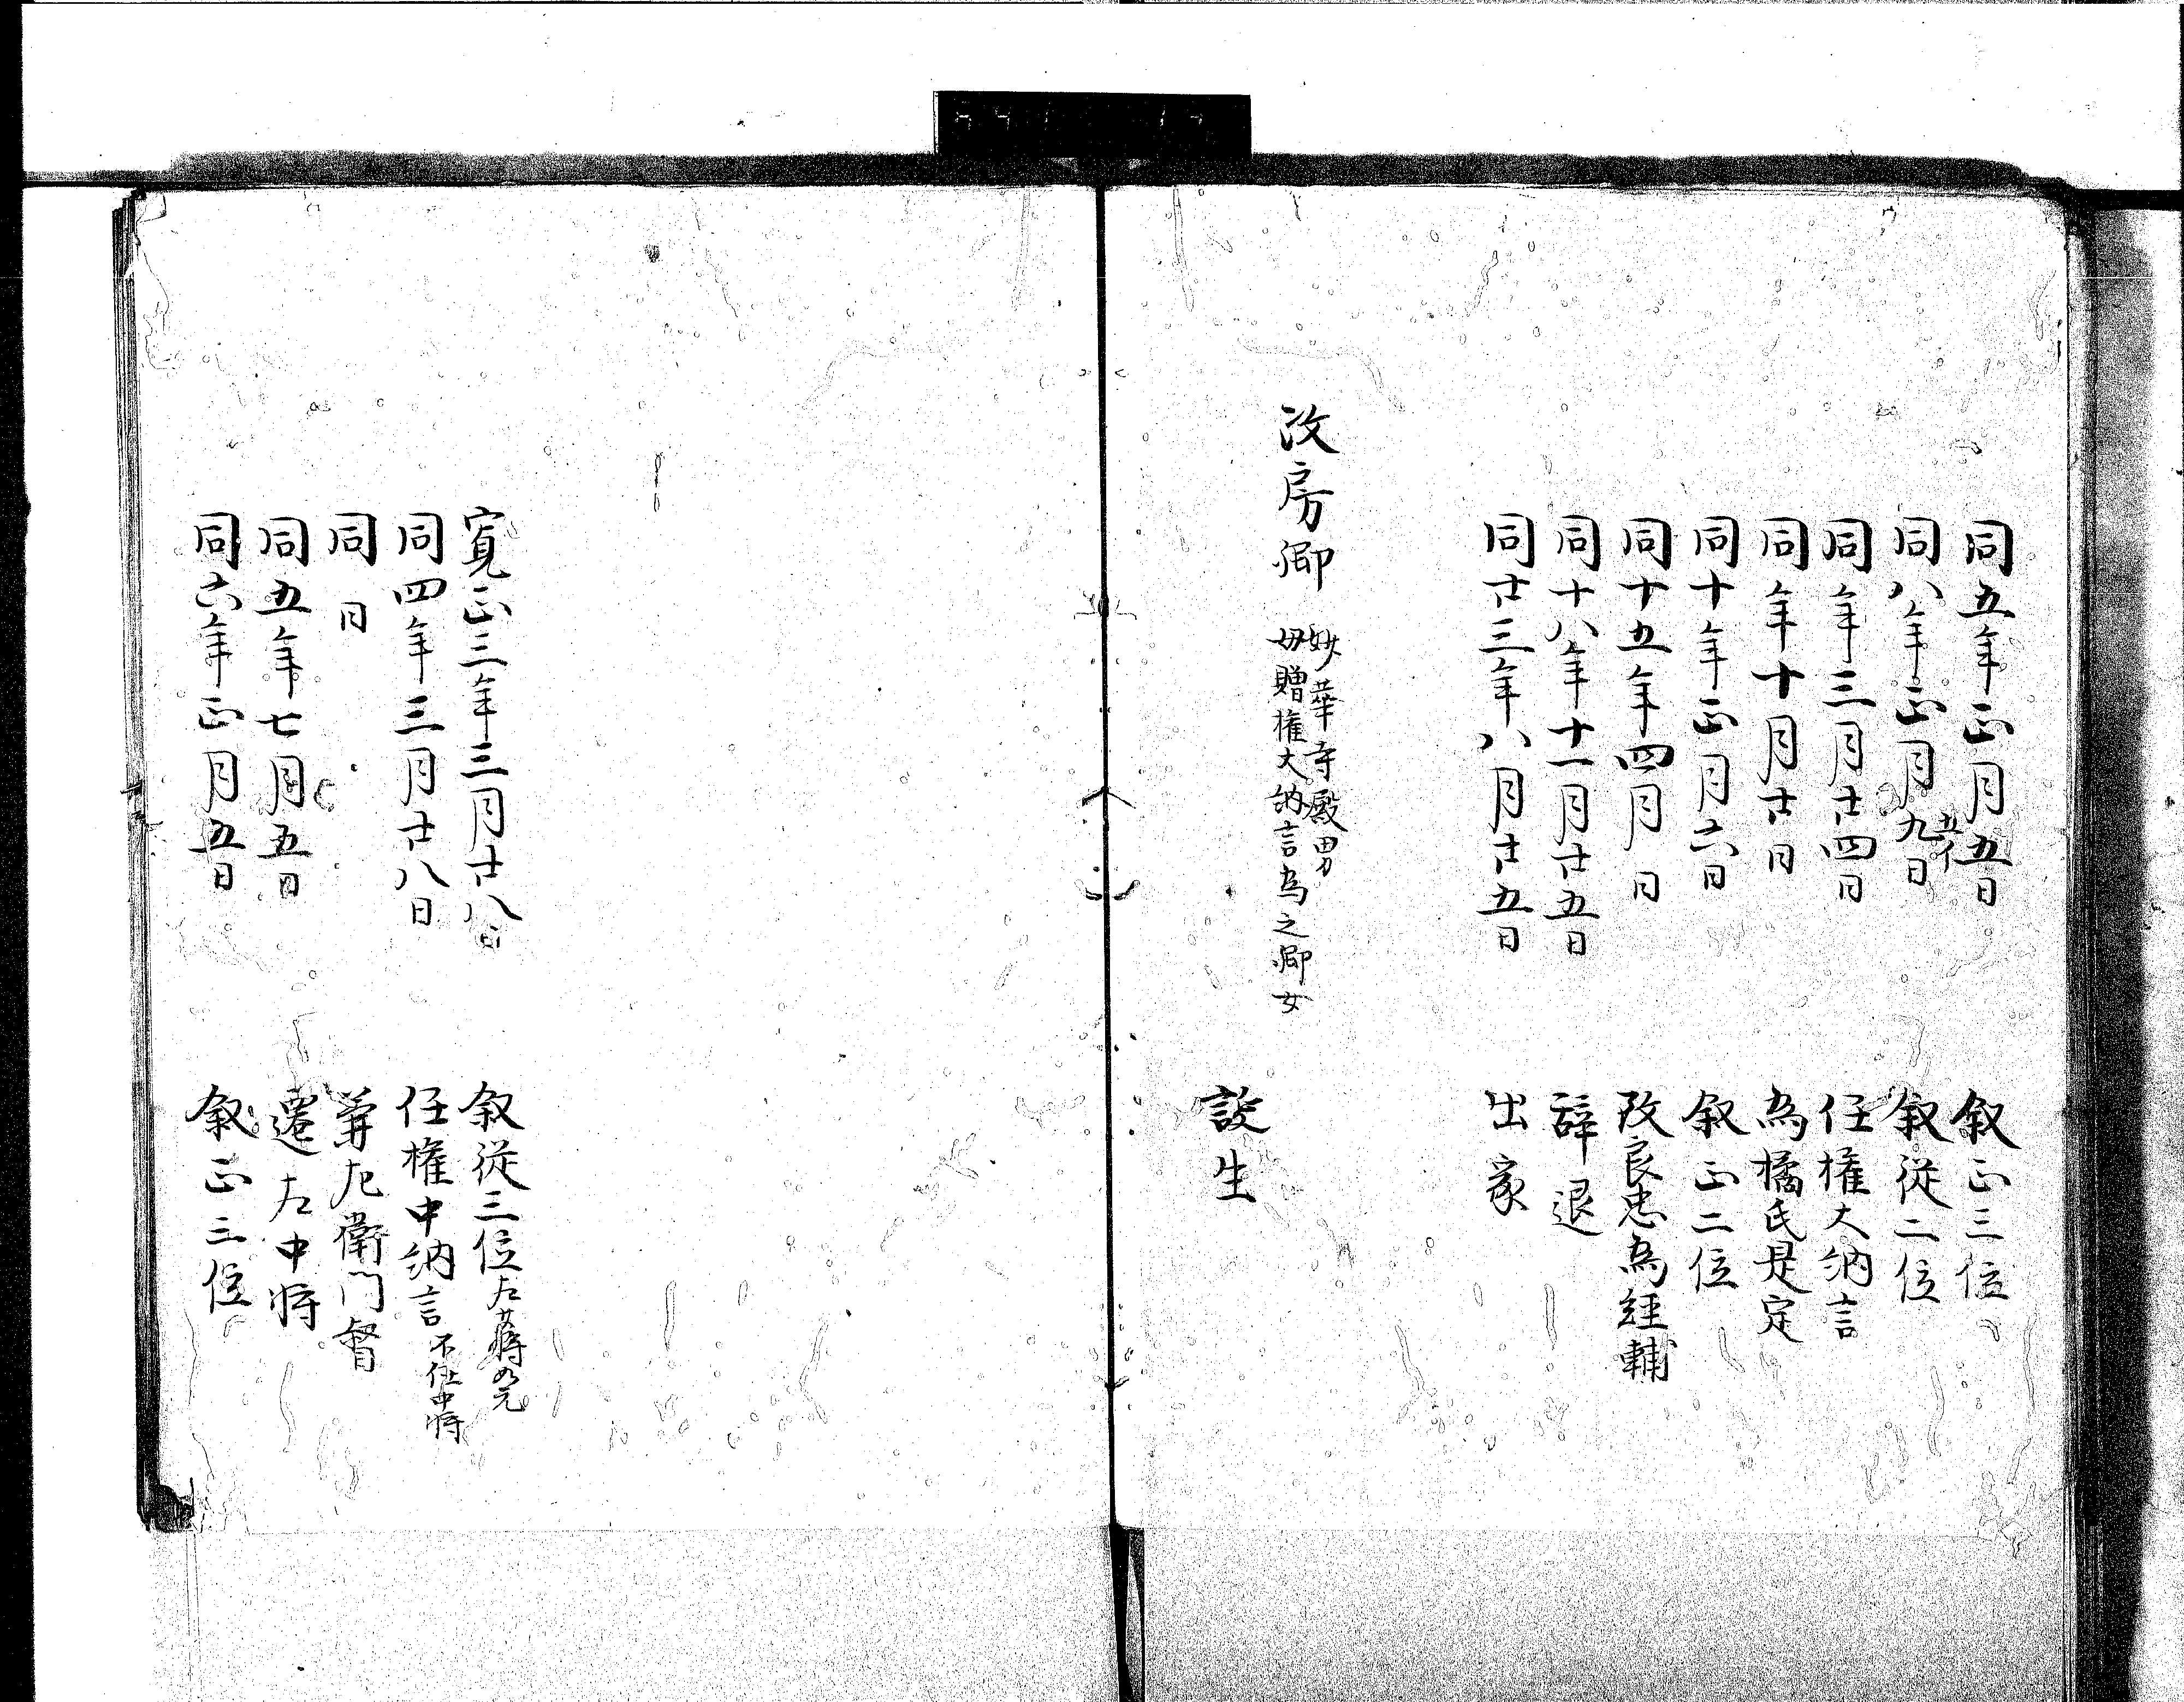 同五年正月五日　叙正三位
同八年正月九日　叙従二位
五イ
同年三月廿四日　任権大納言
同年十月廿日　為橘氏是定
同十年正月六日　叙正二位
同十五年四月　日　改良忠為経輔
同十八年十一月廿五日　辞退
同廿三年八月廿五日　出家
政房卿
妙華寺殿男
母贈権大納言為之卿女
誕生
寛正三年三月廿八日　叙従三位左少将如元
同四年三月廿八日　任権中納言不任中将
同　日　兼左衛門督
同五年七月五日　遷左中将
同六年正月五日　叙正三位